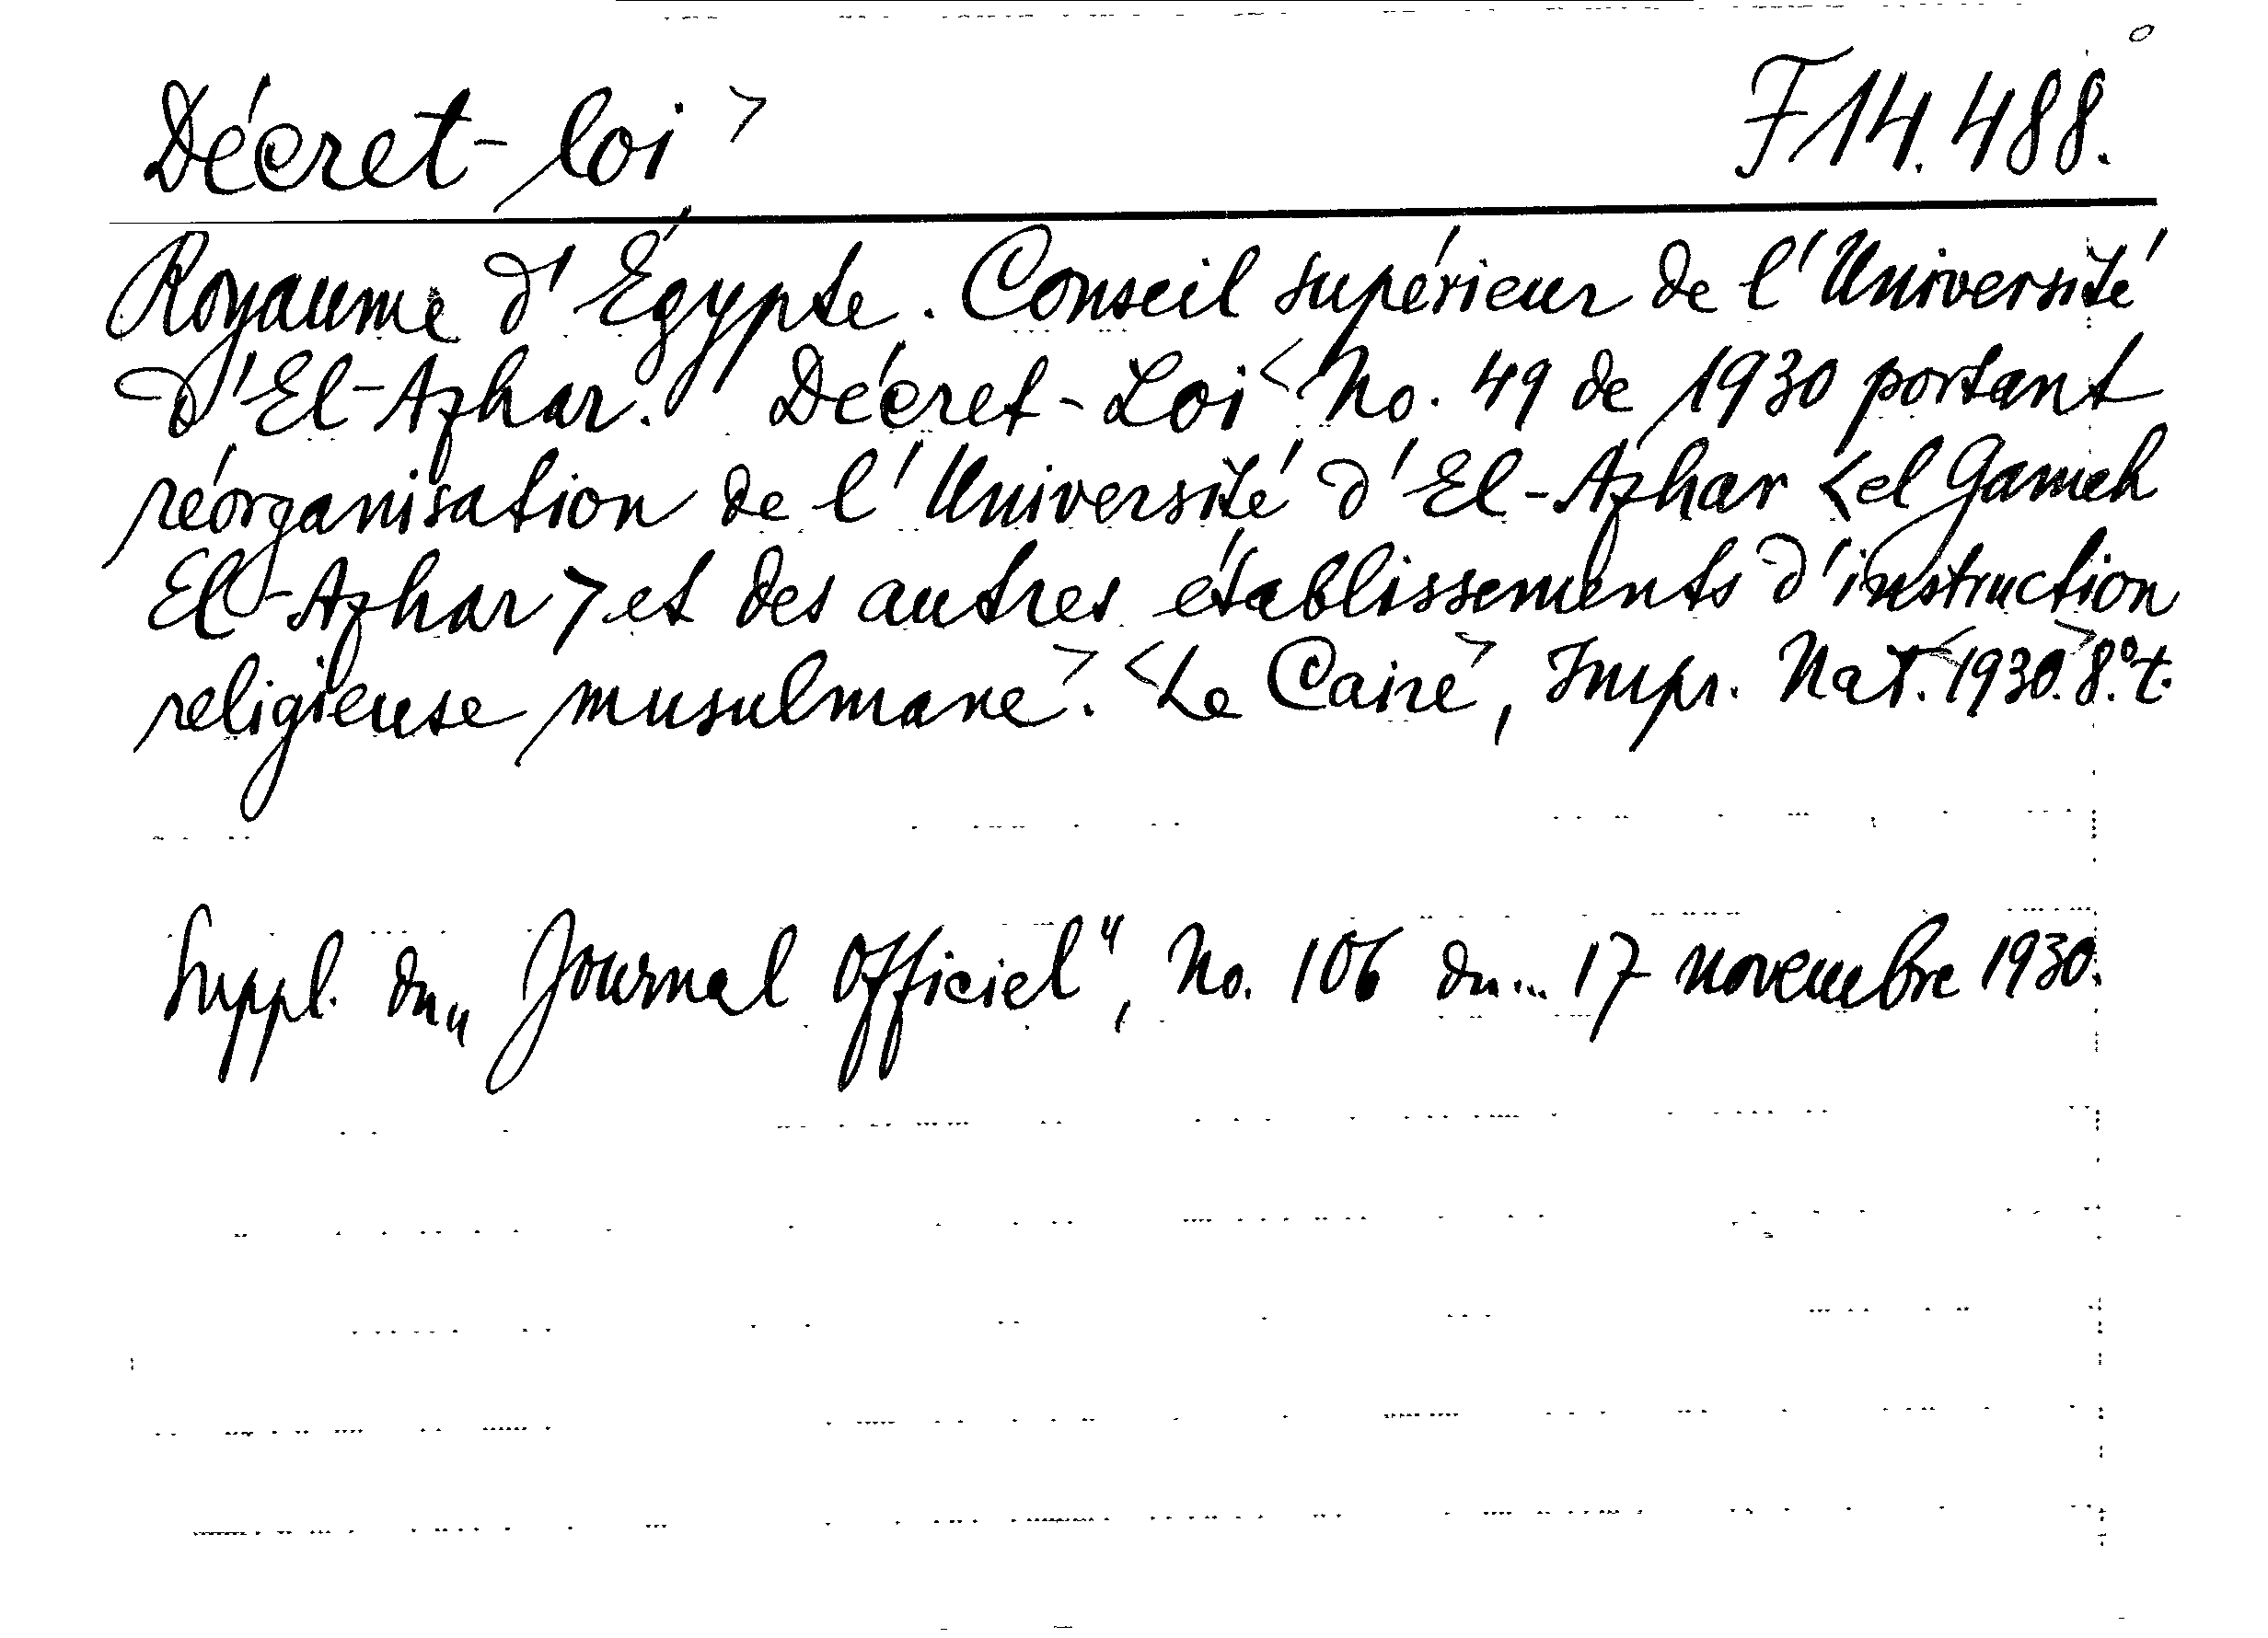 Décret-loi > F14.488.
Royaume d'Égypte. Conseil supérieur de l'Université
d'El-Azhar. Décret-Loi < No. 49 de 1930 portant
réorganisation de l'Université d'El-Azhar <el Gameh
El-Azhar> et des autres établissements d'instruction
religieuse musulmane>. <Le Caire>, Impr. Nat. <1930.> 8.° t.
Suppl. du „Journal Officiel", No. 106 du... 17 novembre 1930.